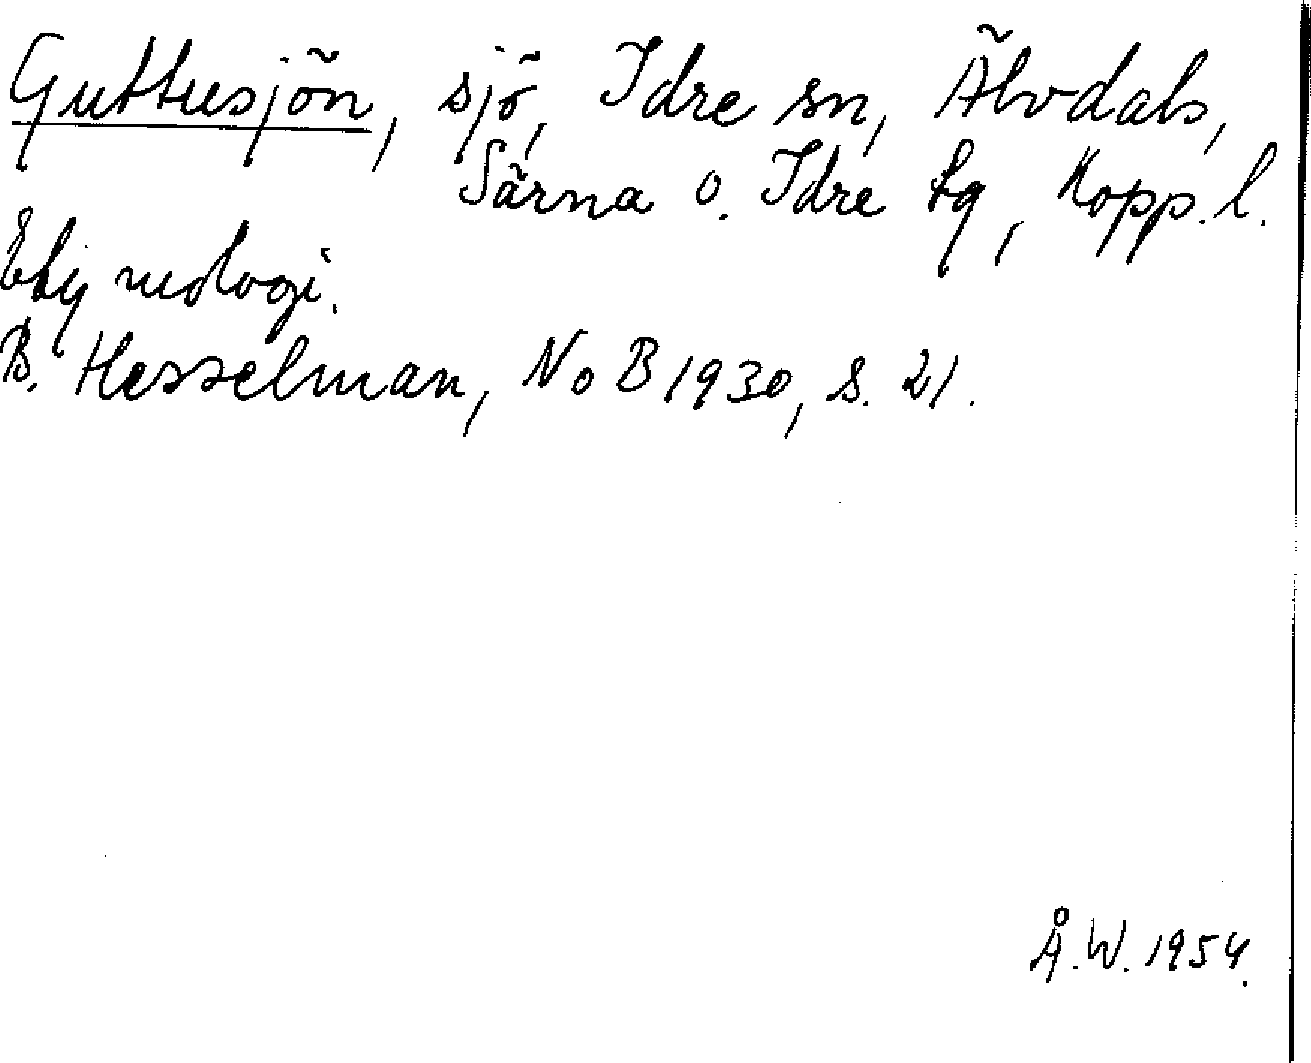 Guttusjön, sjö, Idre sn, Älvdals,
Särna o. Idre tg, Kopp. l.
Etymologi.
B. Hesselman, NoB 1930, s. 21.
Å.W. 1954.